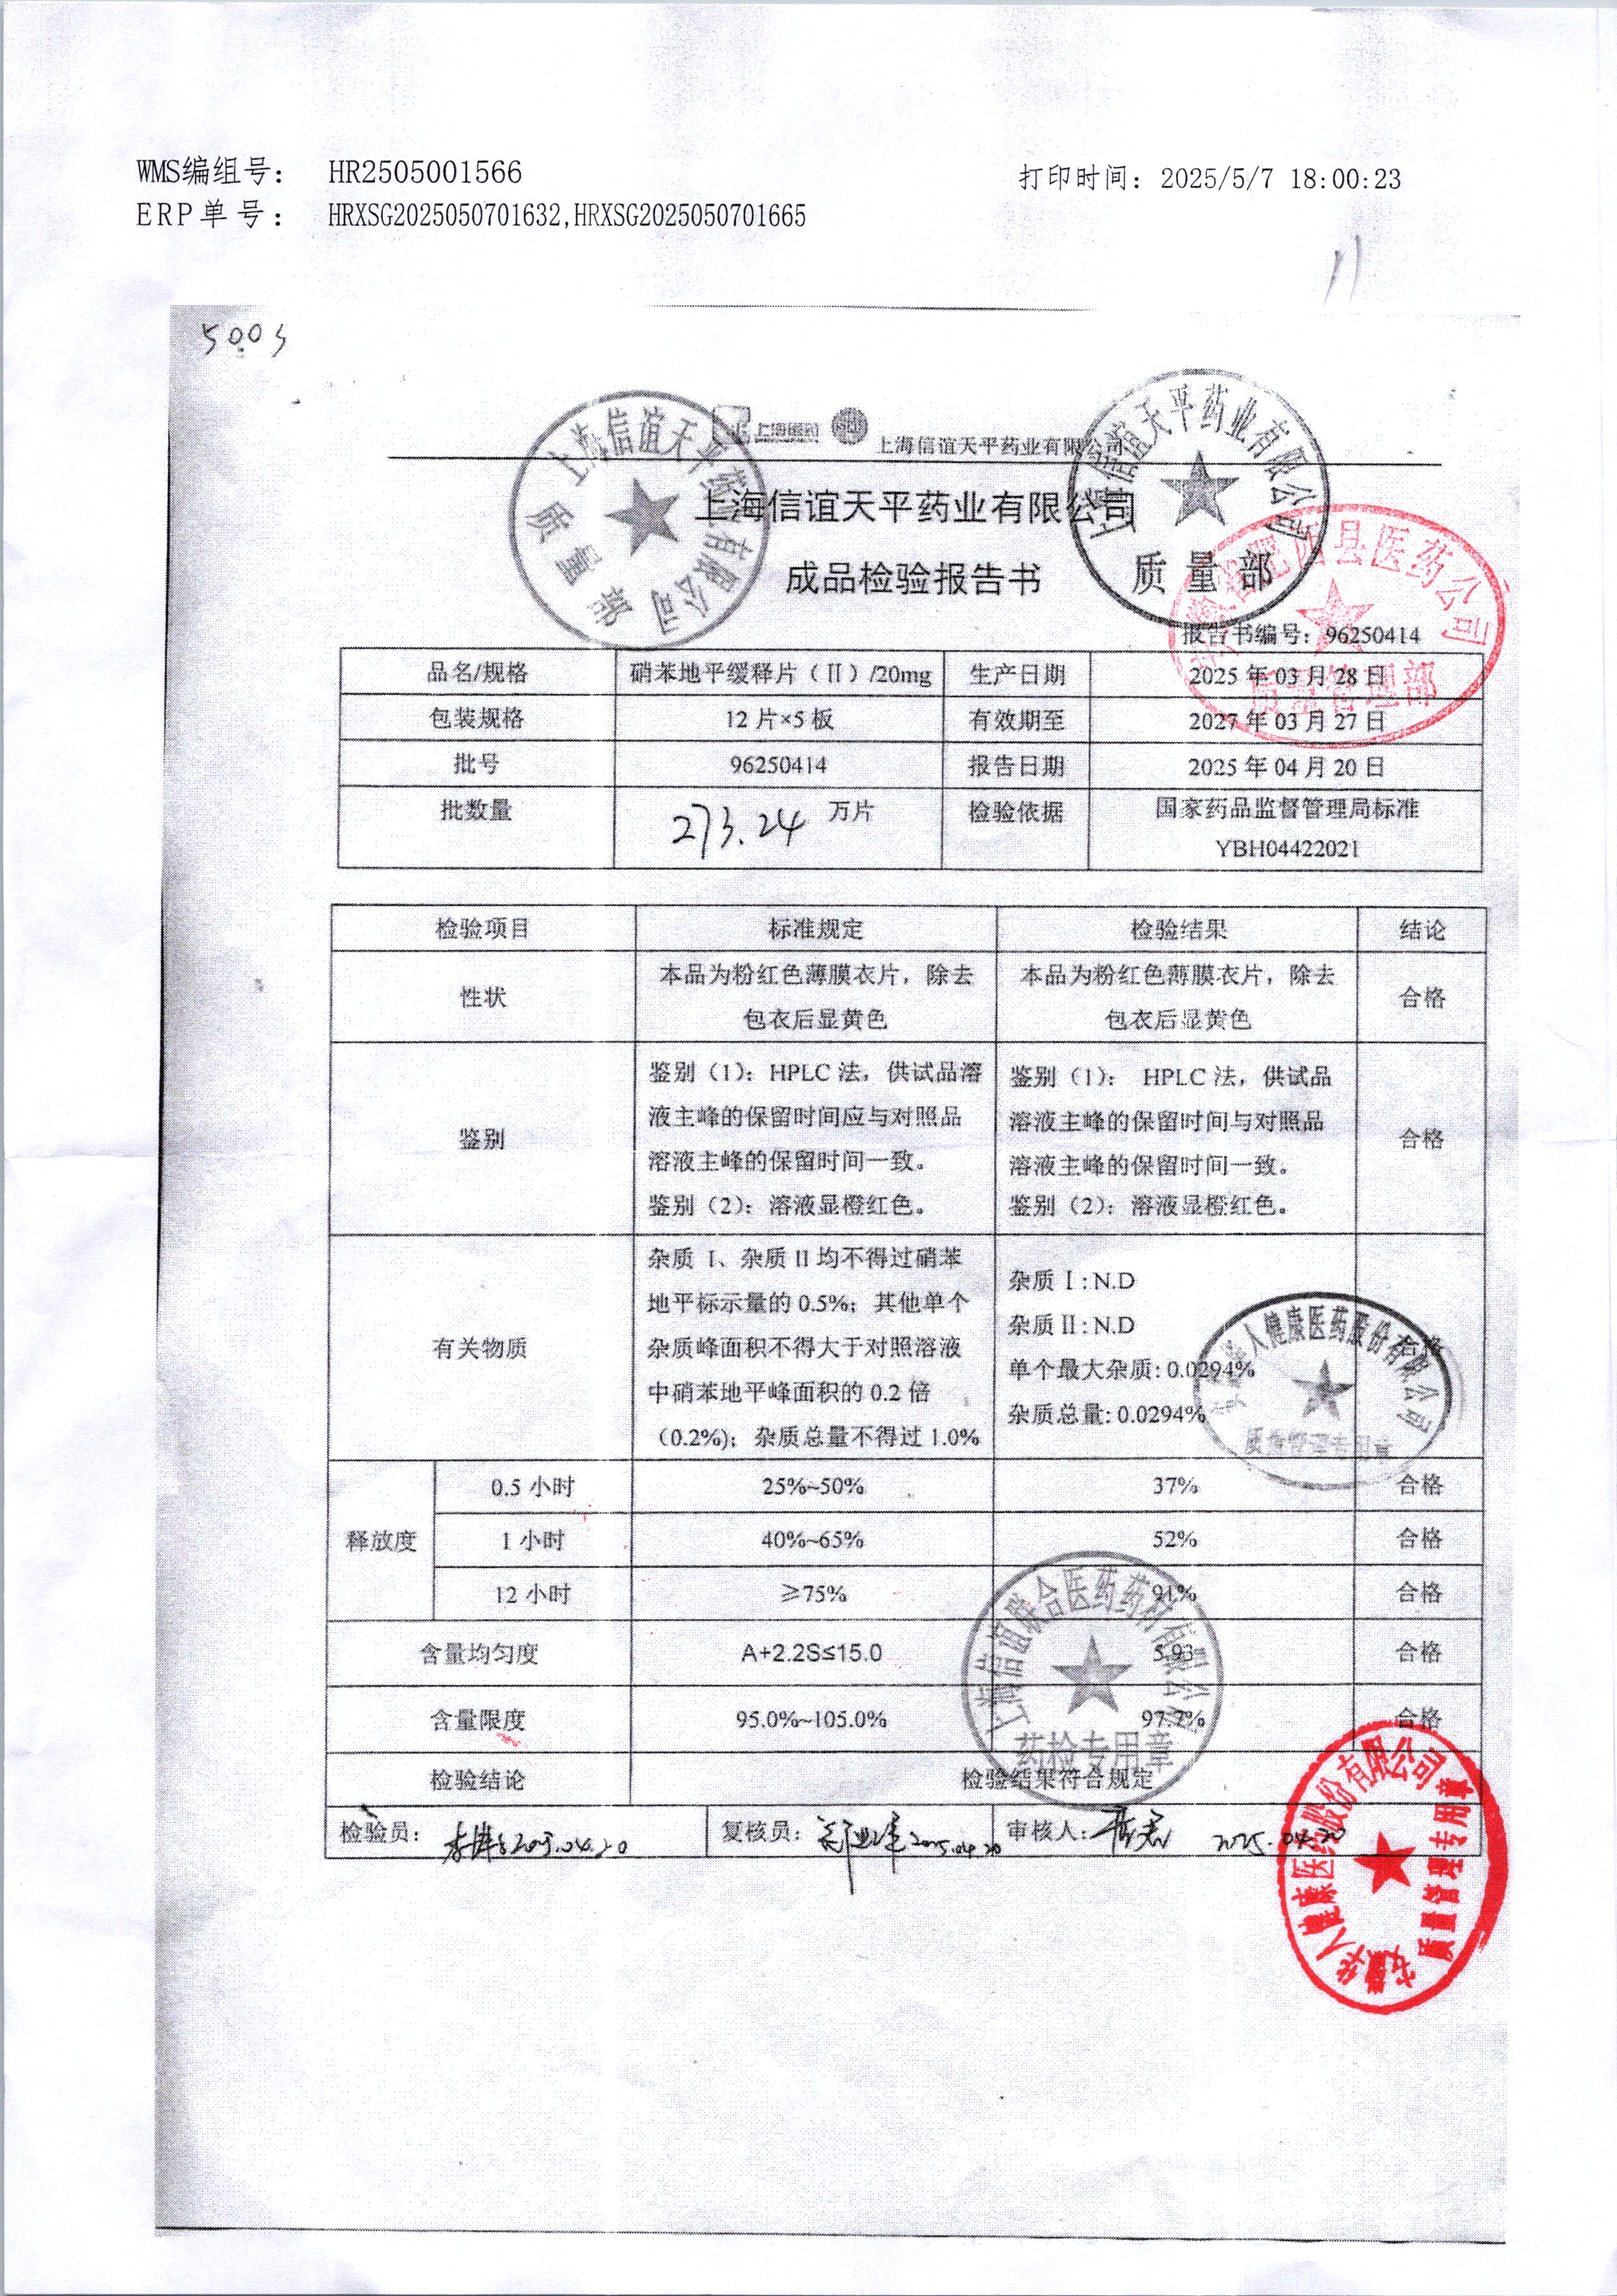 WMS编组号： HR2505001566
打印时间：2025/5/7 18:00:23
ERP单号： HRXSG2025050701632,HRXSG2025050701665
11
5003
上海医药 上海信谊天平药业有限公司
上海信谊天平药业有限公司
成品检验报告书
上海信谊天平药业有限公司
质量部
上海信谊天平药业有限公司
质量部
县医药公司
质量管理部
报告书编号：96250414
品名/规格 硝苯地平缓释片（Ⅱ）/20mg 生产日期 2025年03月28日
包装规格 12片×5板 有效期至 2027年03月27日
批号 96250414 报告日期 2025年04月20日
批数量 273.24 万片 检验依据 国家药品监督管理局标准
YBH04422021
检验项目 标准规定 检验结果 结论
性状
本品为粉红色薄膜衣片，除去
包衣后显黄色
本品为粉红色薄膜衣片，除去
包衣后显黄色
合格
鉴别
鉴别（1）：HPLC法，供试品溶
液主峰的保留时间应与对照品
溶液主峰的保留时间一致。
鉴别（2）：溶液显橙红色。
鉴别（1）： HPLC法，供试品
溶液主峰的保留时间与对照品
溶液主峰的保留时间一致。
鉴别（2）：溶液显橙红色。
合格
有关物质
杂质 I、杂质II均不得过硝苯
地平标示量的0.5%；其他单个
杂质峰面积不得大于对照溶液
中硝苯地平峰面积的0.2倍
（0.2%)；杂质总量不得过1.0%
杂质Ⅰ:N.D
杂质Ⅱ:N.D
单个最大杂质:0.0294%
杂质总量:0.0294%
合格
华人健康医药股份有限公司
质量管理专用章
释放度
0.5小时 25%~50% 37% 合格
1小时 40%~65% 52% 合格
12小时 ≥75% 91% 合格
含量均匀度 A+2.2S≤15.0 5.93 合格
含量限度 95.0%~105.0% 97.7% 合格
上海信谊联合医药药材有限公司
药检专用章
检验结论 检验结果符合规定
检验员： 2025.04.20 复核员： 2025.04.20 审核人： 2025.04.20
安徽华人健康医药股份有限公司
质量管理专用章